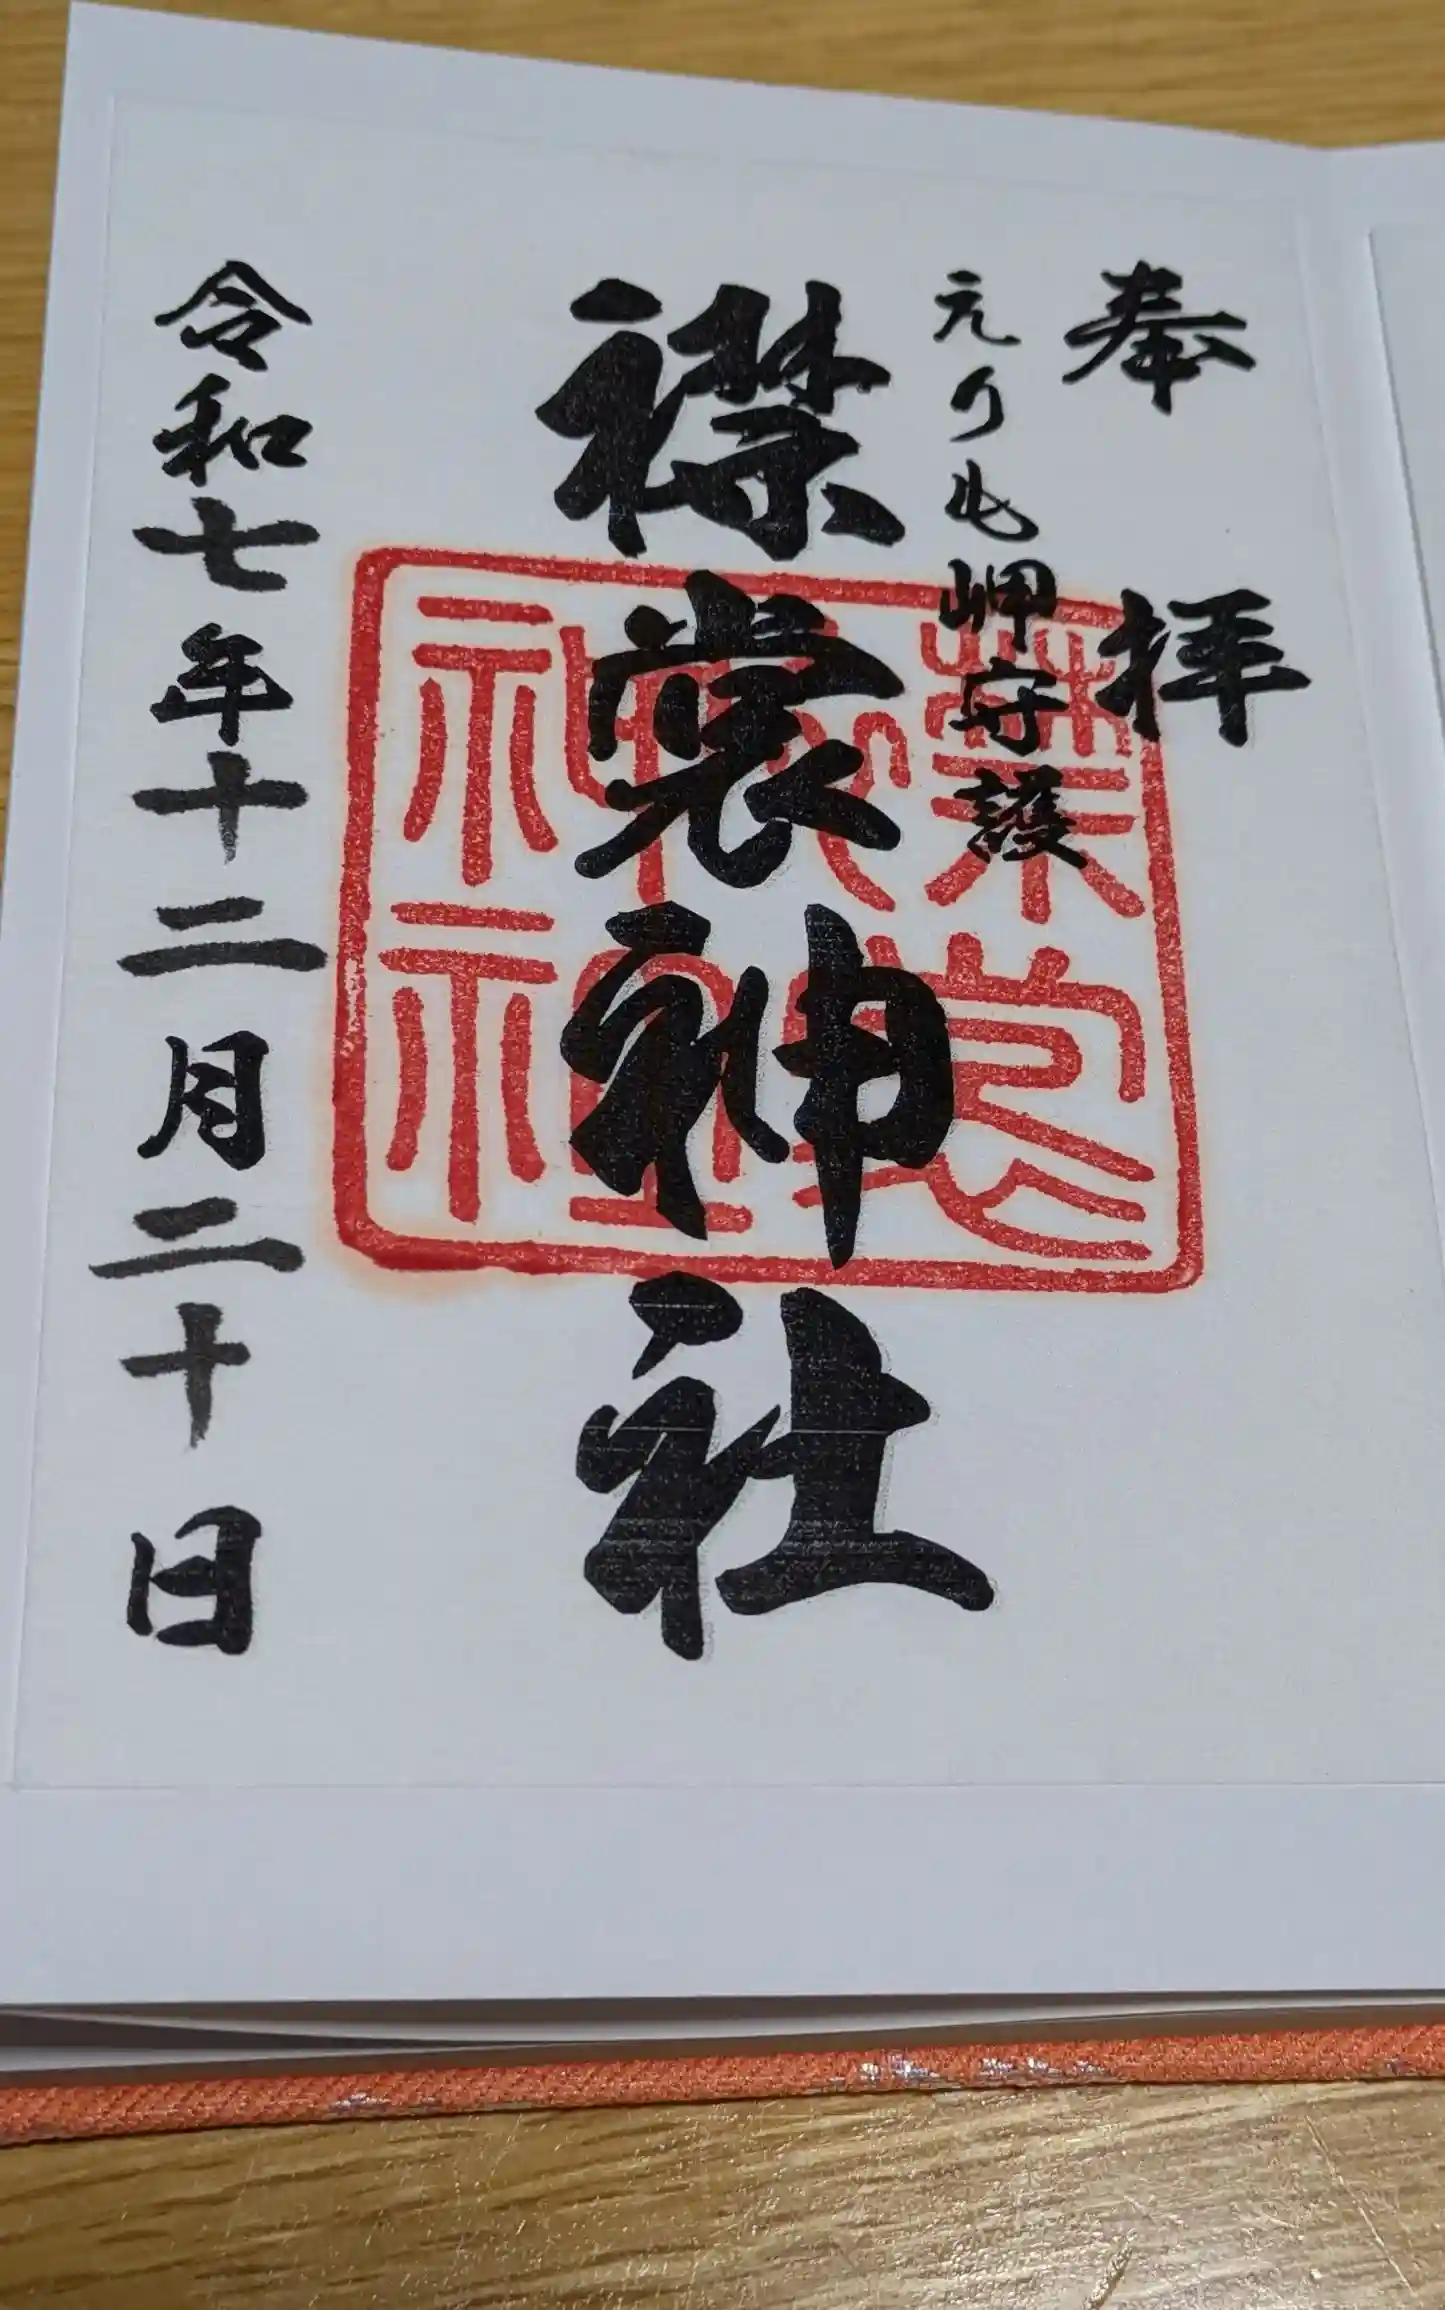 奉拝
えりも岬守護
襟裳神社
襟裳神社
令和七年十二月二十日